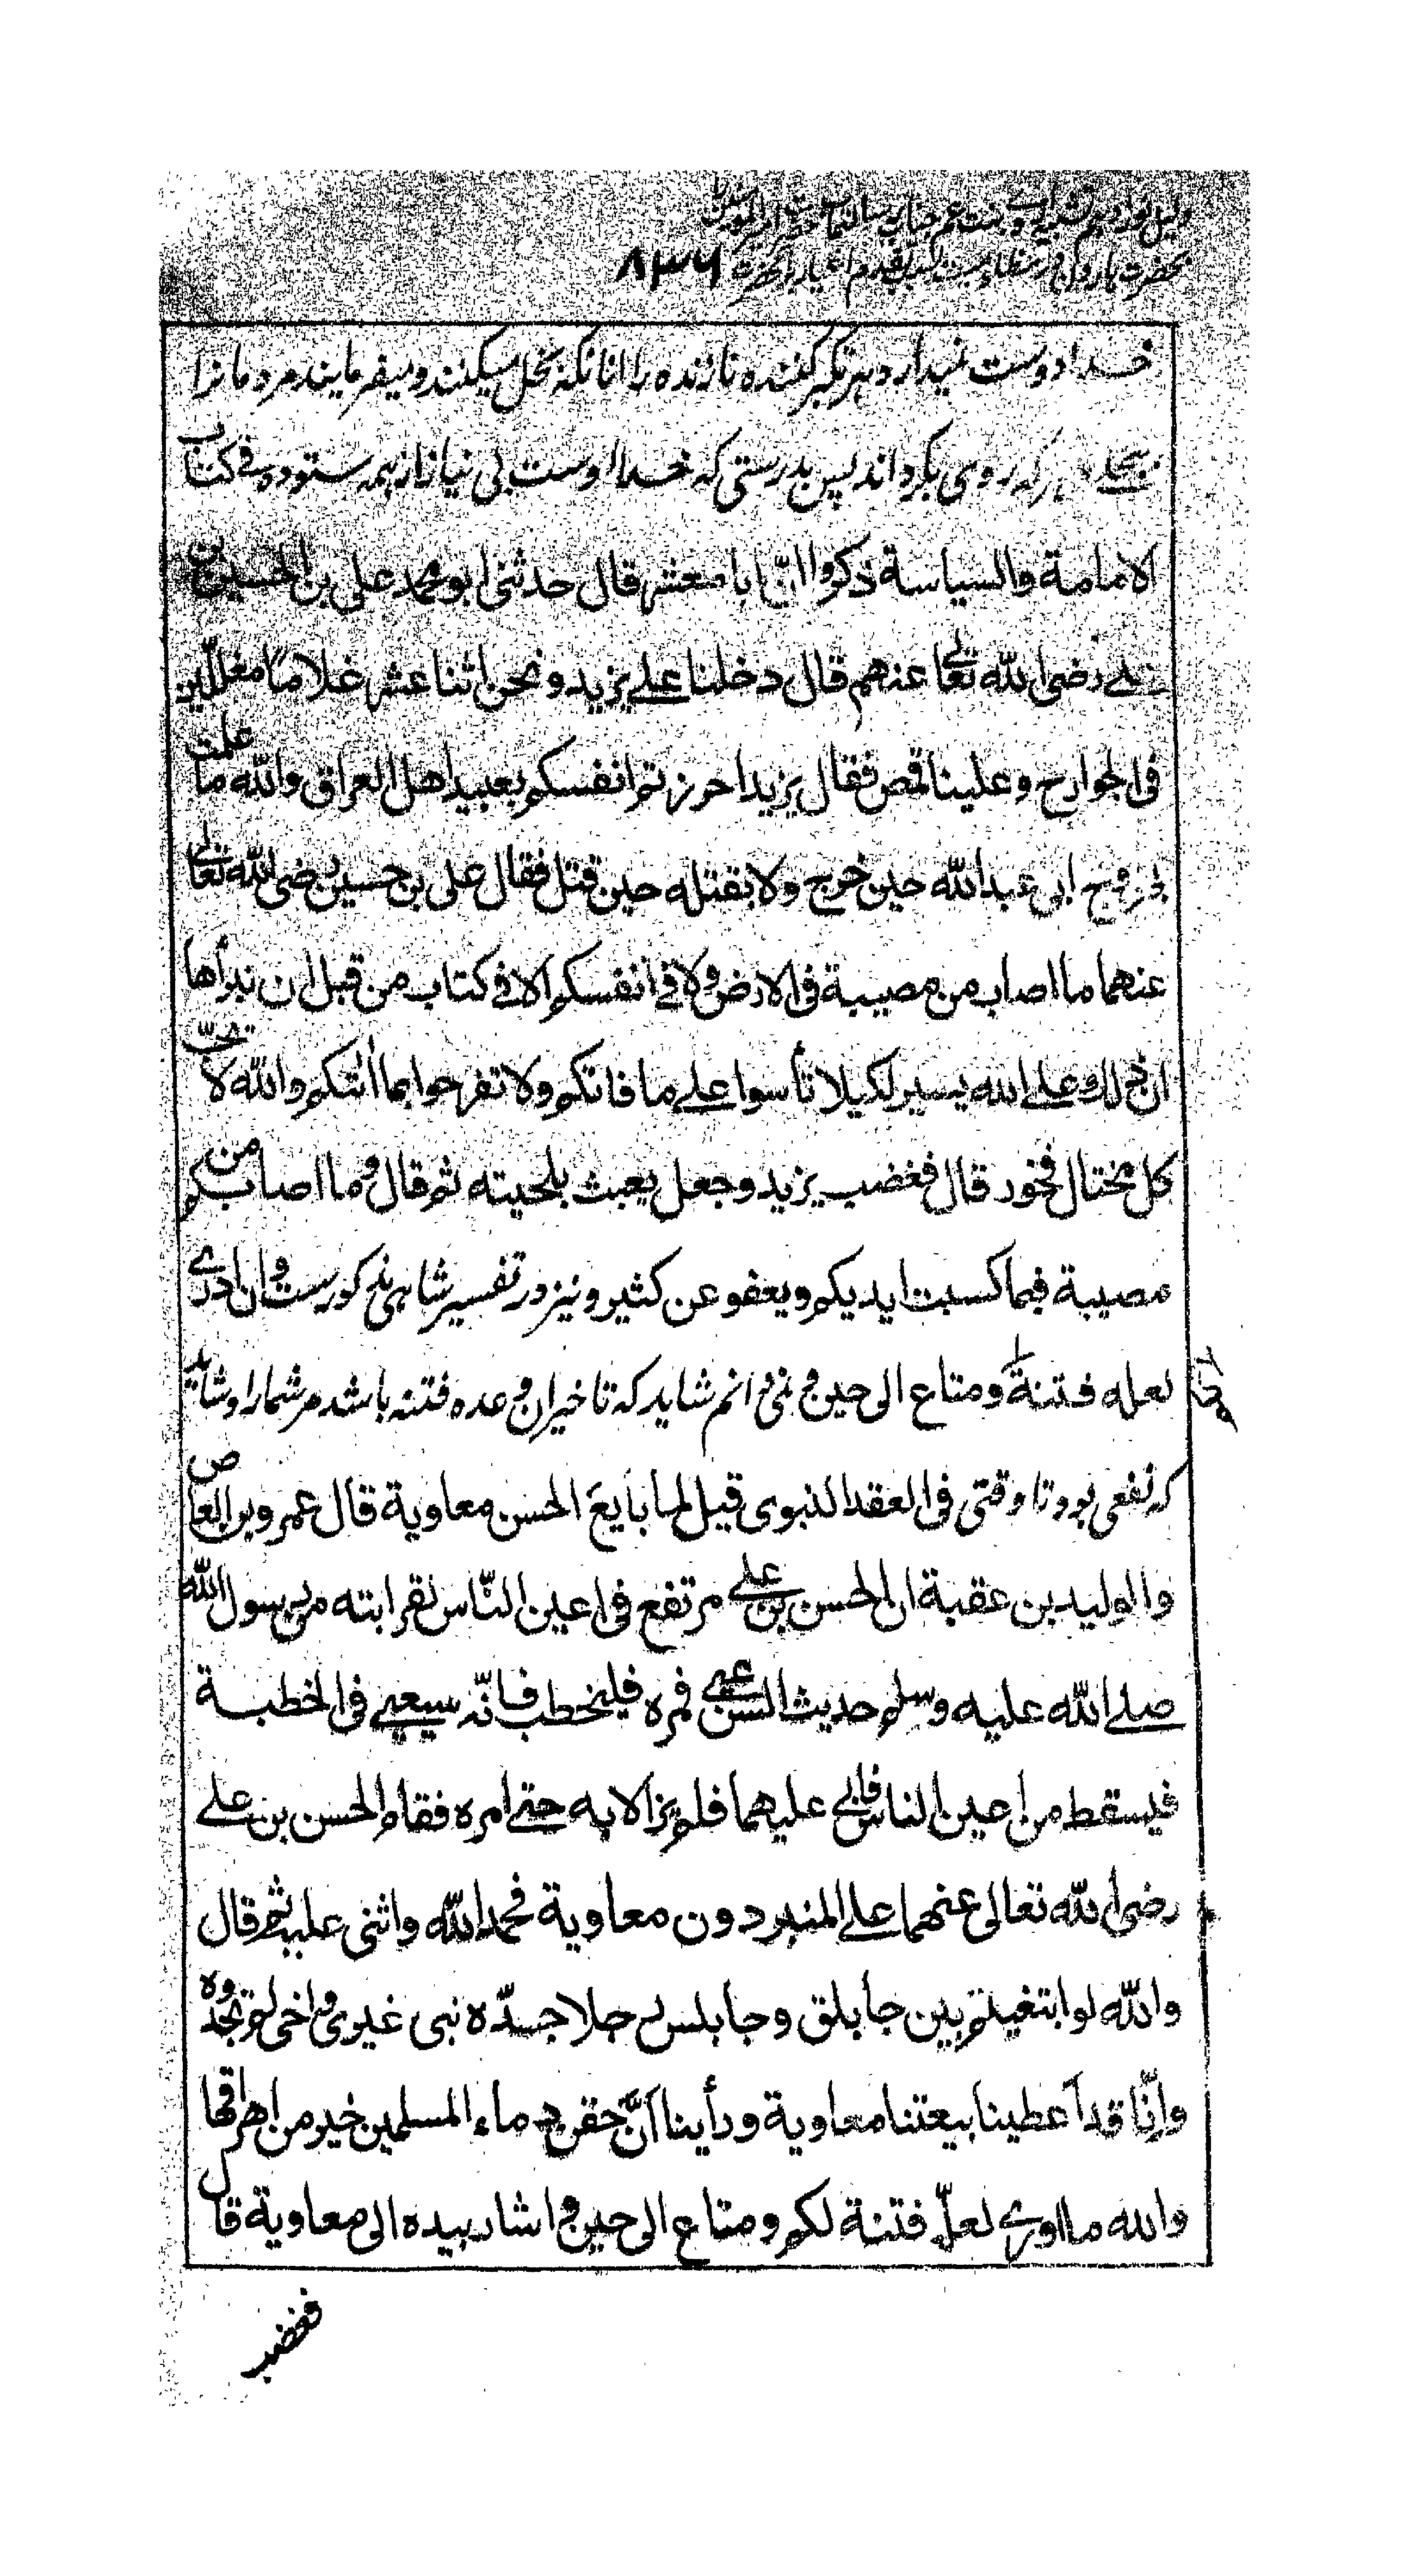 ۸۳۶
خدا دوست نمیدارد هر تکبر کننده نازنده را انانکه بخل میکنند و میفرمایند مردمانرا
ببخل و هرکه روی بگرداند پس بدرستی که خدا اوست بی نیاز از همه ستوده فی کتاب
الامامة والسیاسة ذکروا انّ ابا معشر قال حدثنی ابو محمد علی بن الحسین بن
علے رضی الله تعالی عنهم قال دخلنا علے یزید و نحن اثنا عشر غلامًا مغللین
فی الجوارح و علینا قمص فقال یزید احرزتم انفسکم بعبید اهل العراق والله ما علمت
بخروج ابی عبدالله حین خرج ولا بقتله حین قتل فقال علی بن حسین رضی الله تعالی
عنهما ما اصاب من مصیبة فی الارض ولا فی انفسکم الا فی کتاب من قبل ان نبرأها
ان ذلك علے الله یسیر لکیلا تأسوا علے ما فاتکم ولا تفرحوا بما أتٰکم والله لا یحبّ
کل مختال فخور قال فغضب یزید وجعل یعبث بلحیته ثم قال وما اصابکم من
مصیبة فبما کسبت ایدیکم ویعفو عن کثیر و نیز در تفسیر شاهی مذکورست وان ادرے
لعله فتنة ومتاع الی حین و نمی دانم شاید که تاخیر ان وعده فتنه باشد مر شما را و شاید
که نفعی بود تا وقتی فی العقد النبوی قیل لما بایع الحسن معاویة قال عمرو بن العاص
والولید بن عقبة ان الحسن بن علے مرتفع فی اعین النّاس لقرابته من رسول الله
صلے الله علیه وسلم حدیث السن عیی فمره فلیخطب فانّه سیعیی فی الخطبة
فیسقط من اعین الناس فابی علیهما فلم یزالا به حتے امره فقام الحسن بن علے
رضی الله تعالی عنهما علے المنبر دون معاویة فحمد الله واثنی علیه ثم قال
والله لو ابتغیتم بین جابلق وجابلس رجلا جدّه نبی غیری واخی لم تجدوه
وانّا قد اعطینا بیعتنا معاویة ورأینا انّ حقن دماء المسلمین خیر من اهراقها
والله ما ادری لعلّه فتنة لکم ومتاع الی حین و اشار بیده الی معاویة قال
فغضب